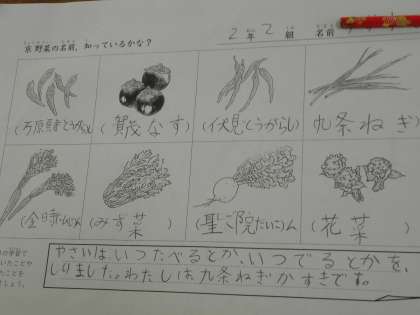 京野菜の名前、知っているかな？
2年 2組 名前
(万願寺とうがらし)
(賀茂なす)
(伏見とうがらし)
九条ねぎ)
(金時にんじん
(みず菜)
(聖ご院だいこん
(花菜)
やさいはいつたべるとか、いつでるとかを、
しりました。わたしは九条ねぎがすきです。